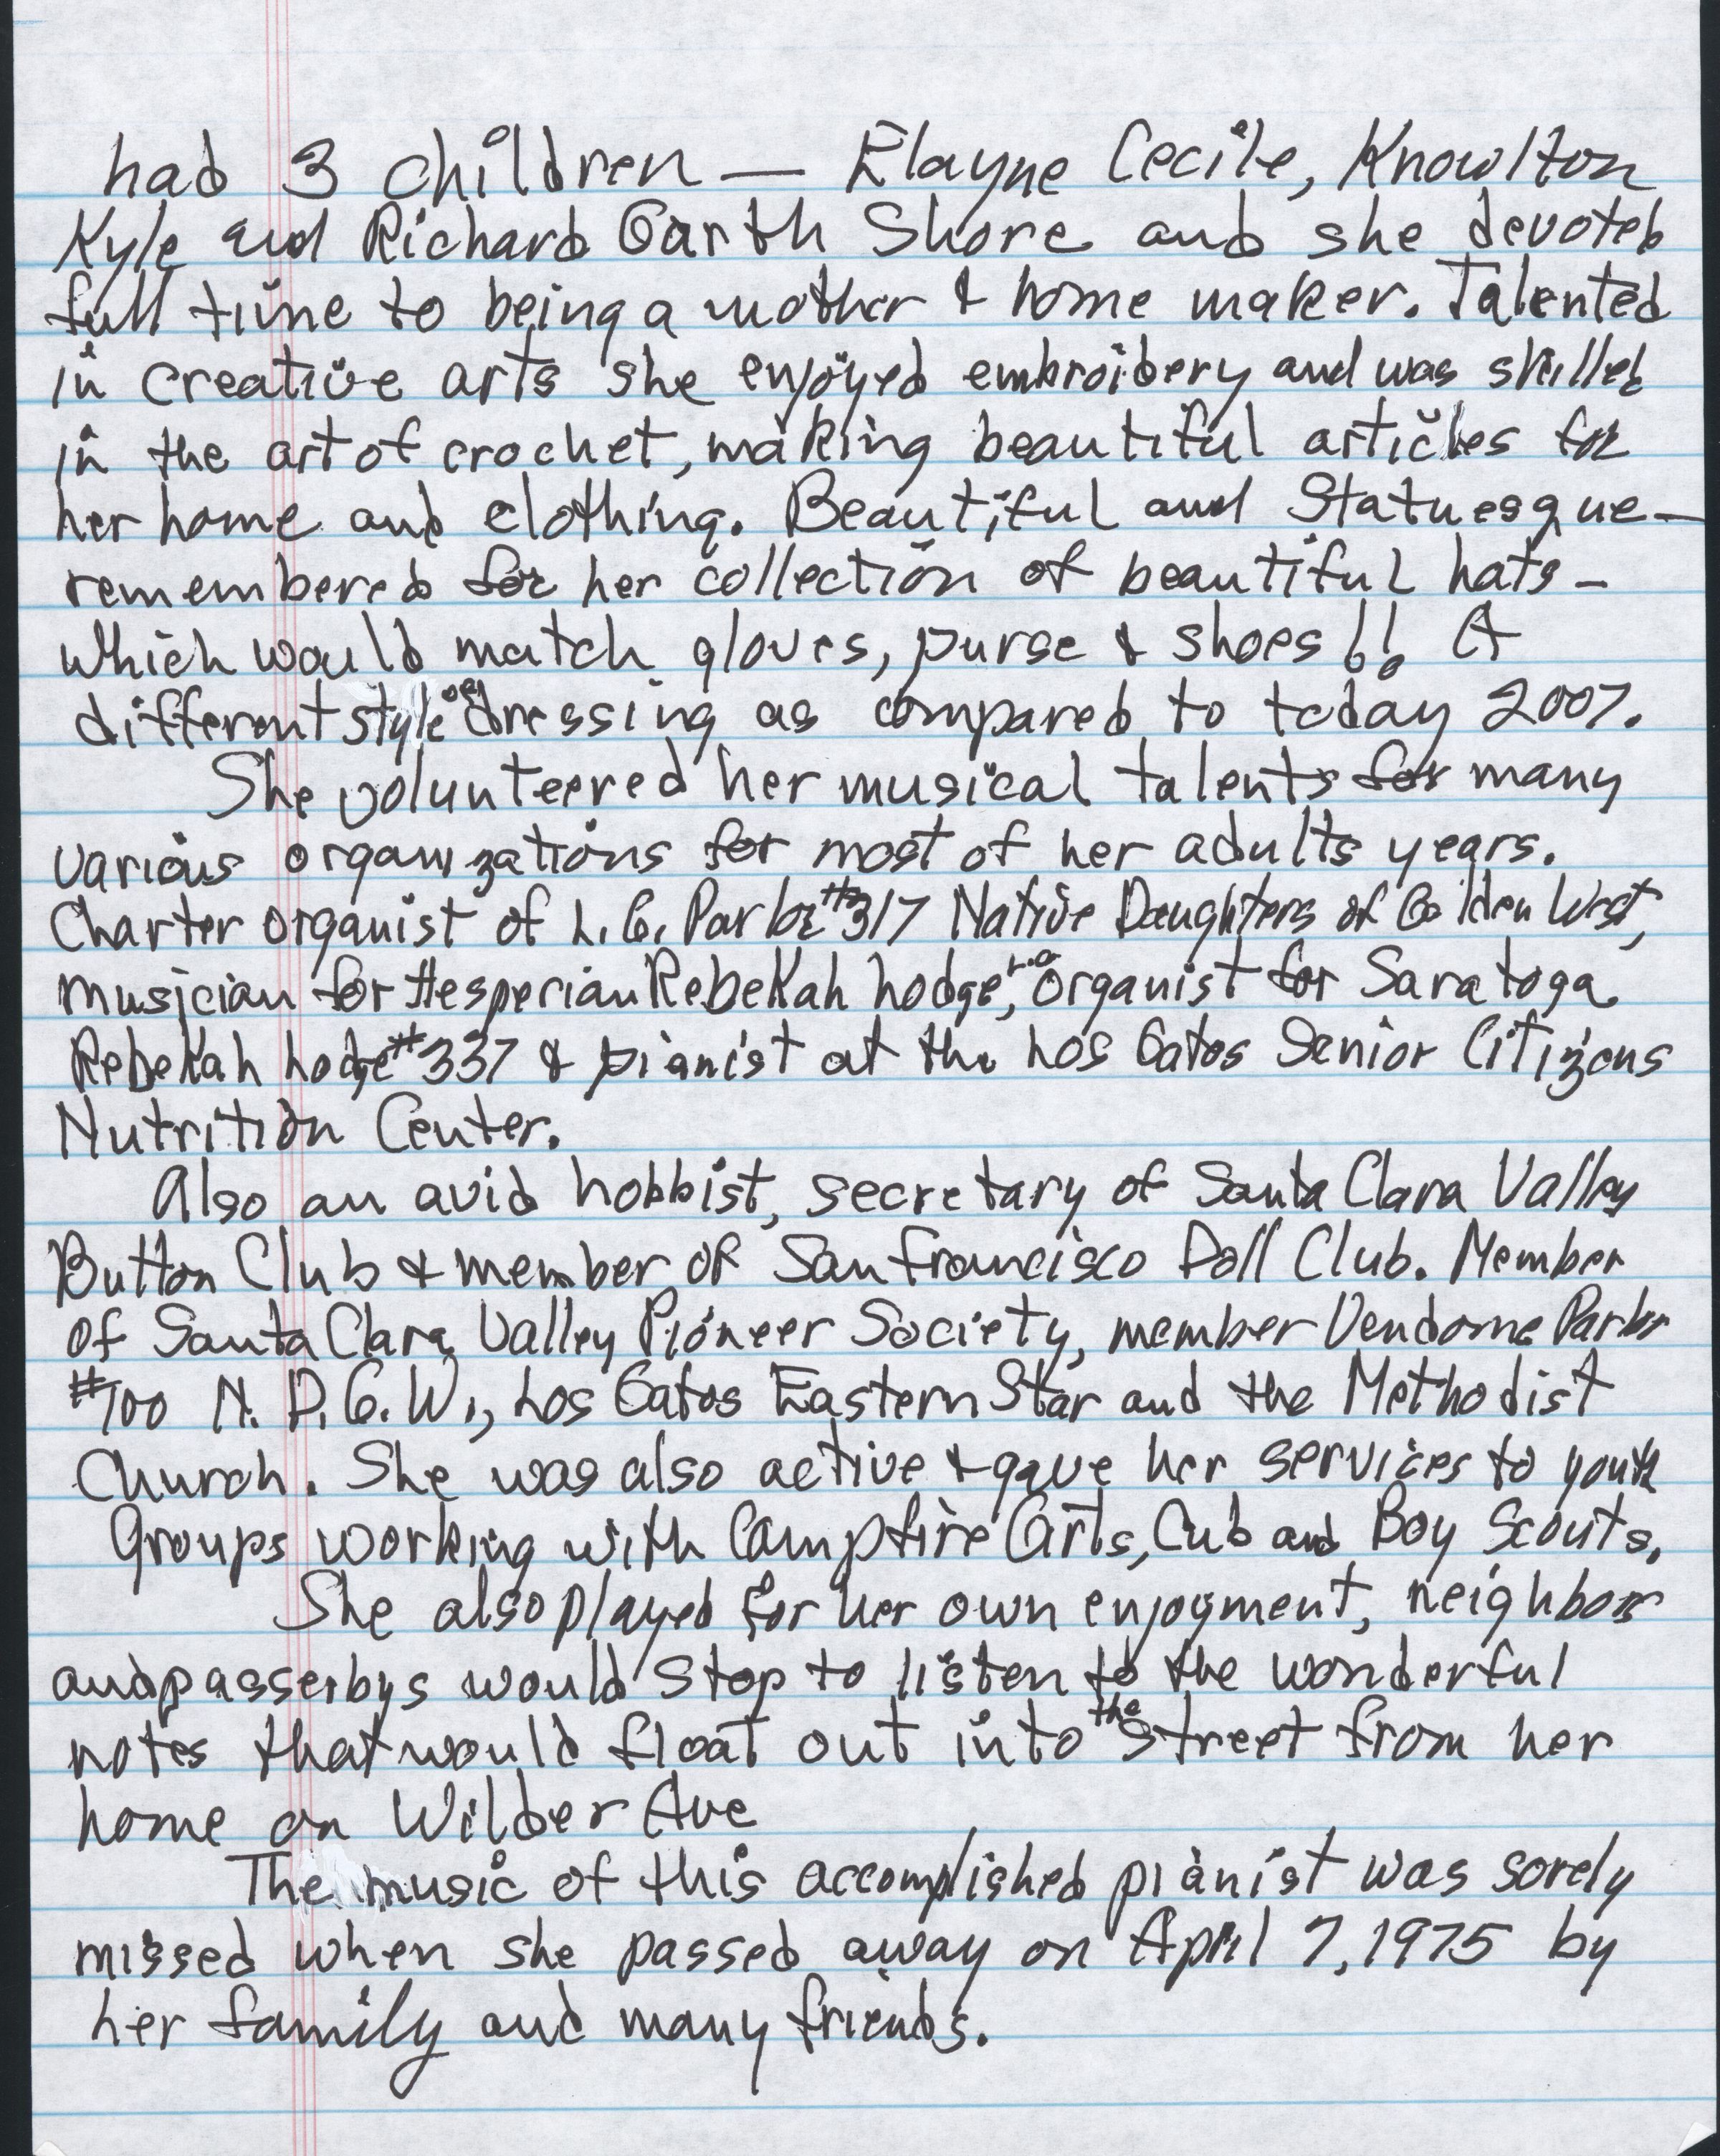 had 3 children — Elayne Cecile, Knowlton
Kyle and Richard Garth Shore and she devoted
full time to being a mother & home maker. Talented
in creative arts she enjoyed embroidery and was skilled
in the art of crochet, making beautiful articles for
her home and clothing. Beautiful and Statuesque —
remembered for her collection of beautiful hats —
which would match gloves, purse & shoes!! A
different style of dressing as compared to today 2007.
She volunteered her musical talents for many
various organizations for most of her adults years.
Charter organist of L.G. Parlor #317 Native Daughters of Golden West,
musician for Hesperian Rebekah Lodge, organist for Saratoga
Rebekah Lodge #337 & pianist at the Los Gatos Senior Citizens
Nutrition Center.
Also an avid hobbist, secretary of Santa Clara Valley
Button Club & member of San Francisco Doll Club. Member
of Santa Clara Valley Pioneer Society, member Vendome Parlor
#100 N.D.G.W., Los Gatos Eastern Star and the Methodist
Church. She was also active & gave her services to youth
Groups working with Campfire Girls, Cub and Boy Scouts.
She also played for her own enjoyment, neighbors
and passerbys would stop to listen to the wonderful
notes that would float out into the street from her
home on Wilder Ave
The music of this accomplished pianist was sorely
missed when she passed away on April 7, 1975 by
her family and many friends.